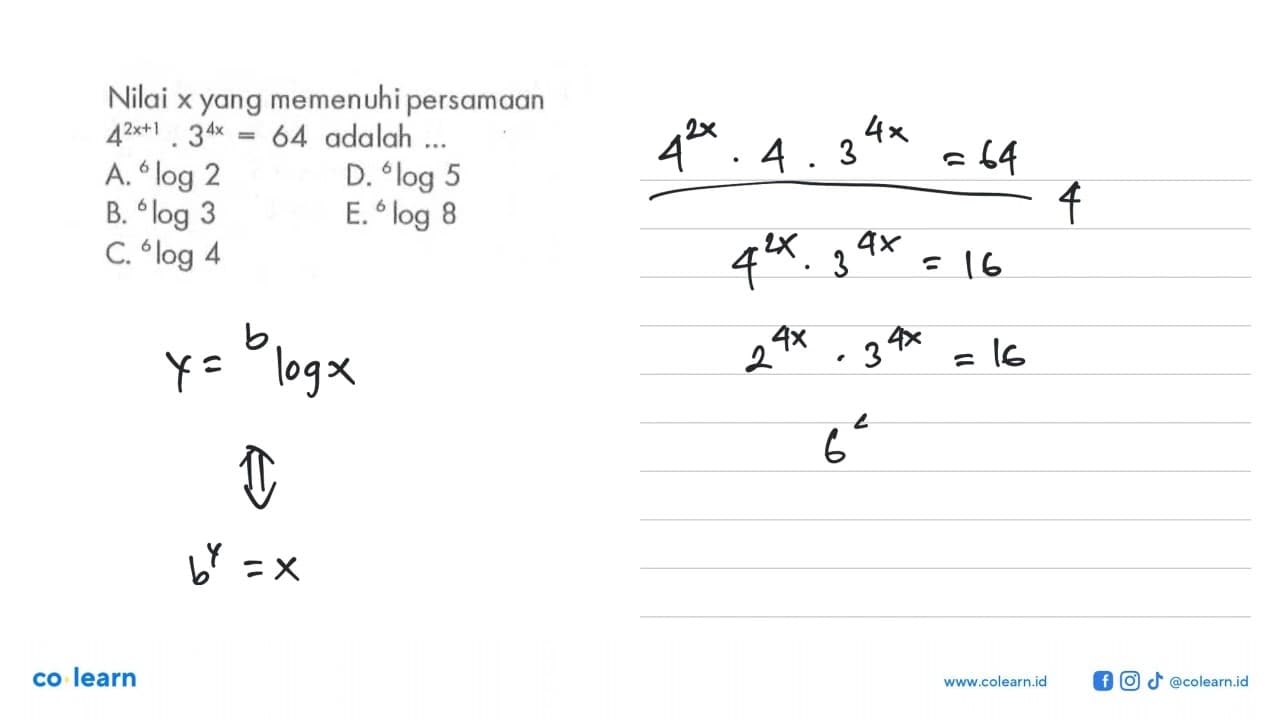 Nilai x yang memenuhi persamaan
4^{2x+1} . 3^{4x} = 64 adalah ...
A. ⁶log 2 D. ⁶log 5
B. ⁶log 3 E. ⁶log 8
C. ⁶log 4
y = ᵇlog x
⇕
b^y = x
4^{2x} . 4 . 3^{4x} = 64
4
4^{2x} . 3^{4x} = 16
2^{4x} . 3^{4x} = 16
6
co learn
www.colearn.id @colearn.id